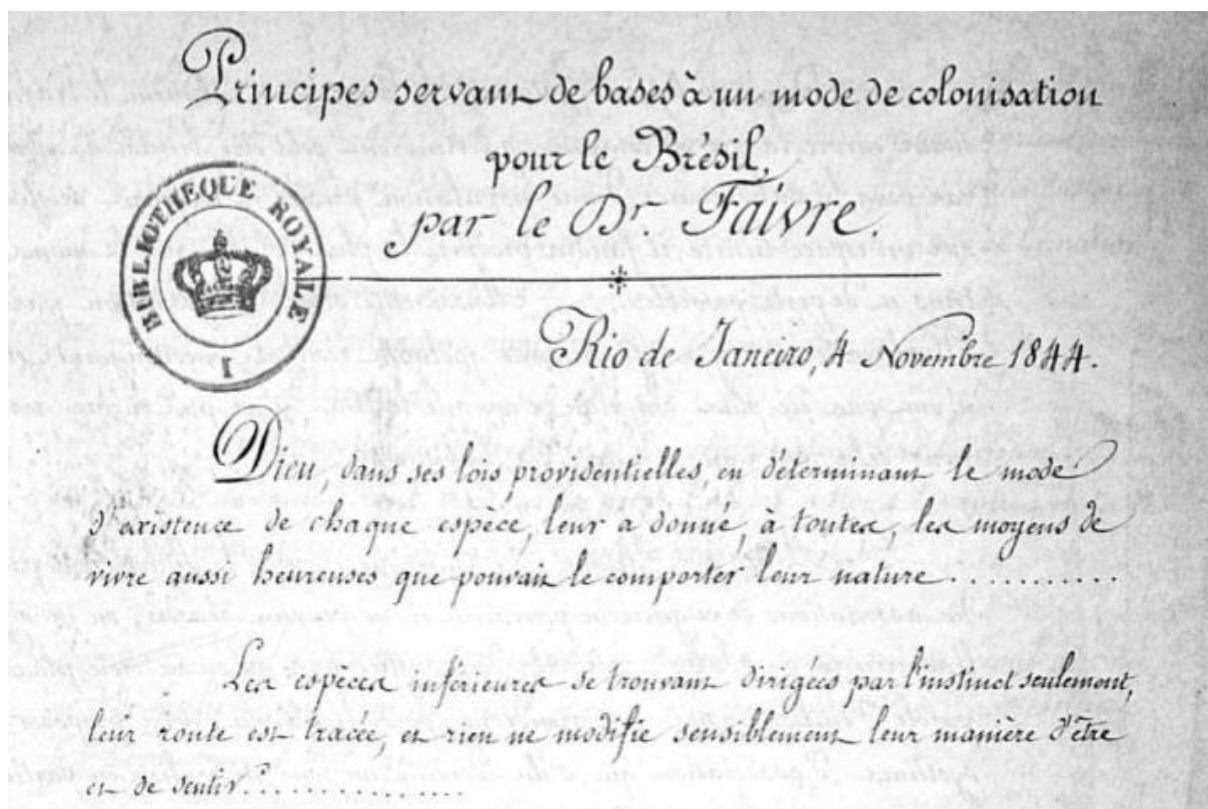 Principes servant de bases à un mode de colonisation
pour le Brésil,
par le Dr. Faivre.
BIBLIOTHEQUE ROYALE
I
Rio de Janeiro, 4 Novembre 1844.
Dieu, dans ses lois providentielles, en déterminant le mode
d'existence de chaque espèce, leur a donné, à toutes, les moyens de
vivre aussi heureuses que pouvait le comporter leur nature...........
Les espèces inférieures se trouvant dirigées par l'instinct seulement,
leur route est tracée, et rien ne modifie sensiblement leur manière d'être
et de sentir...............